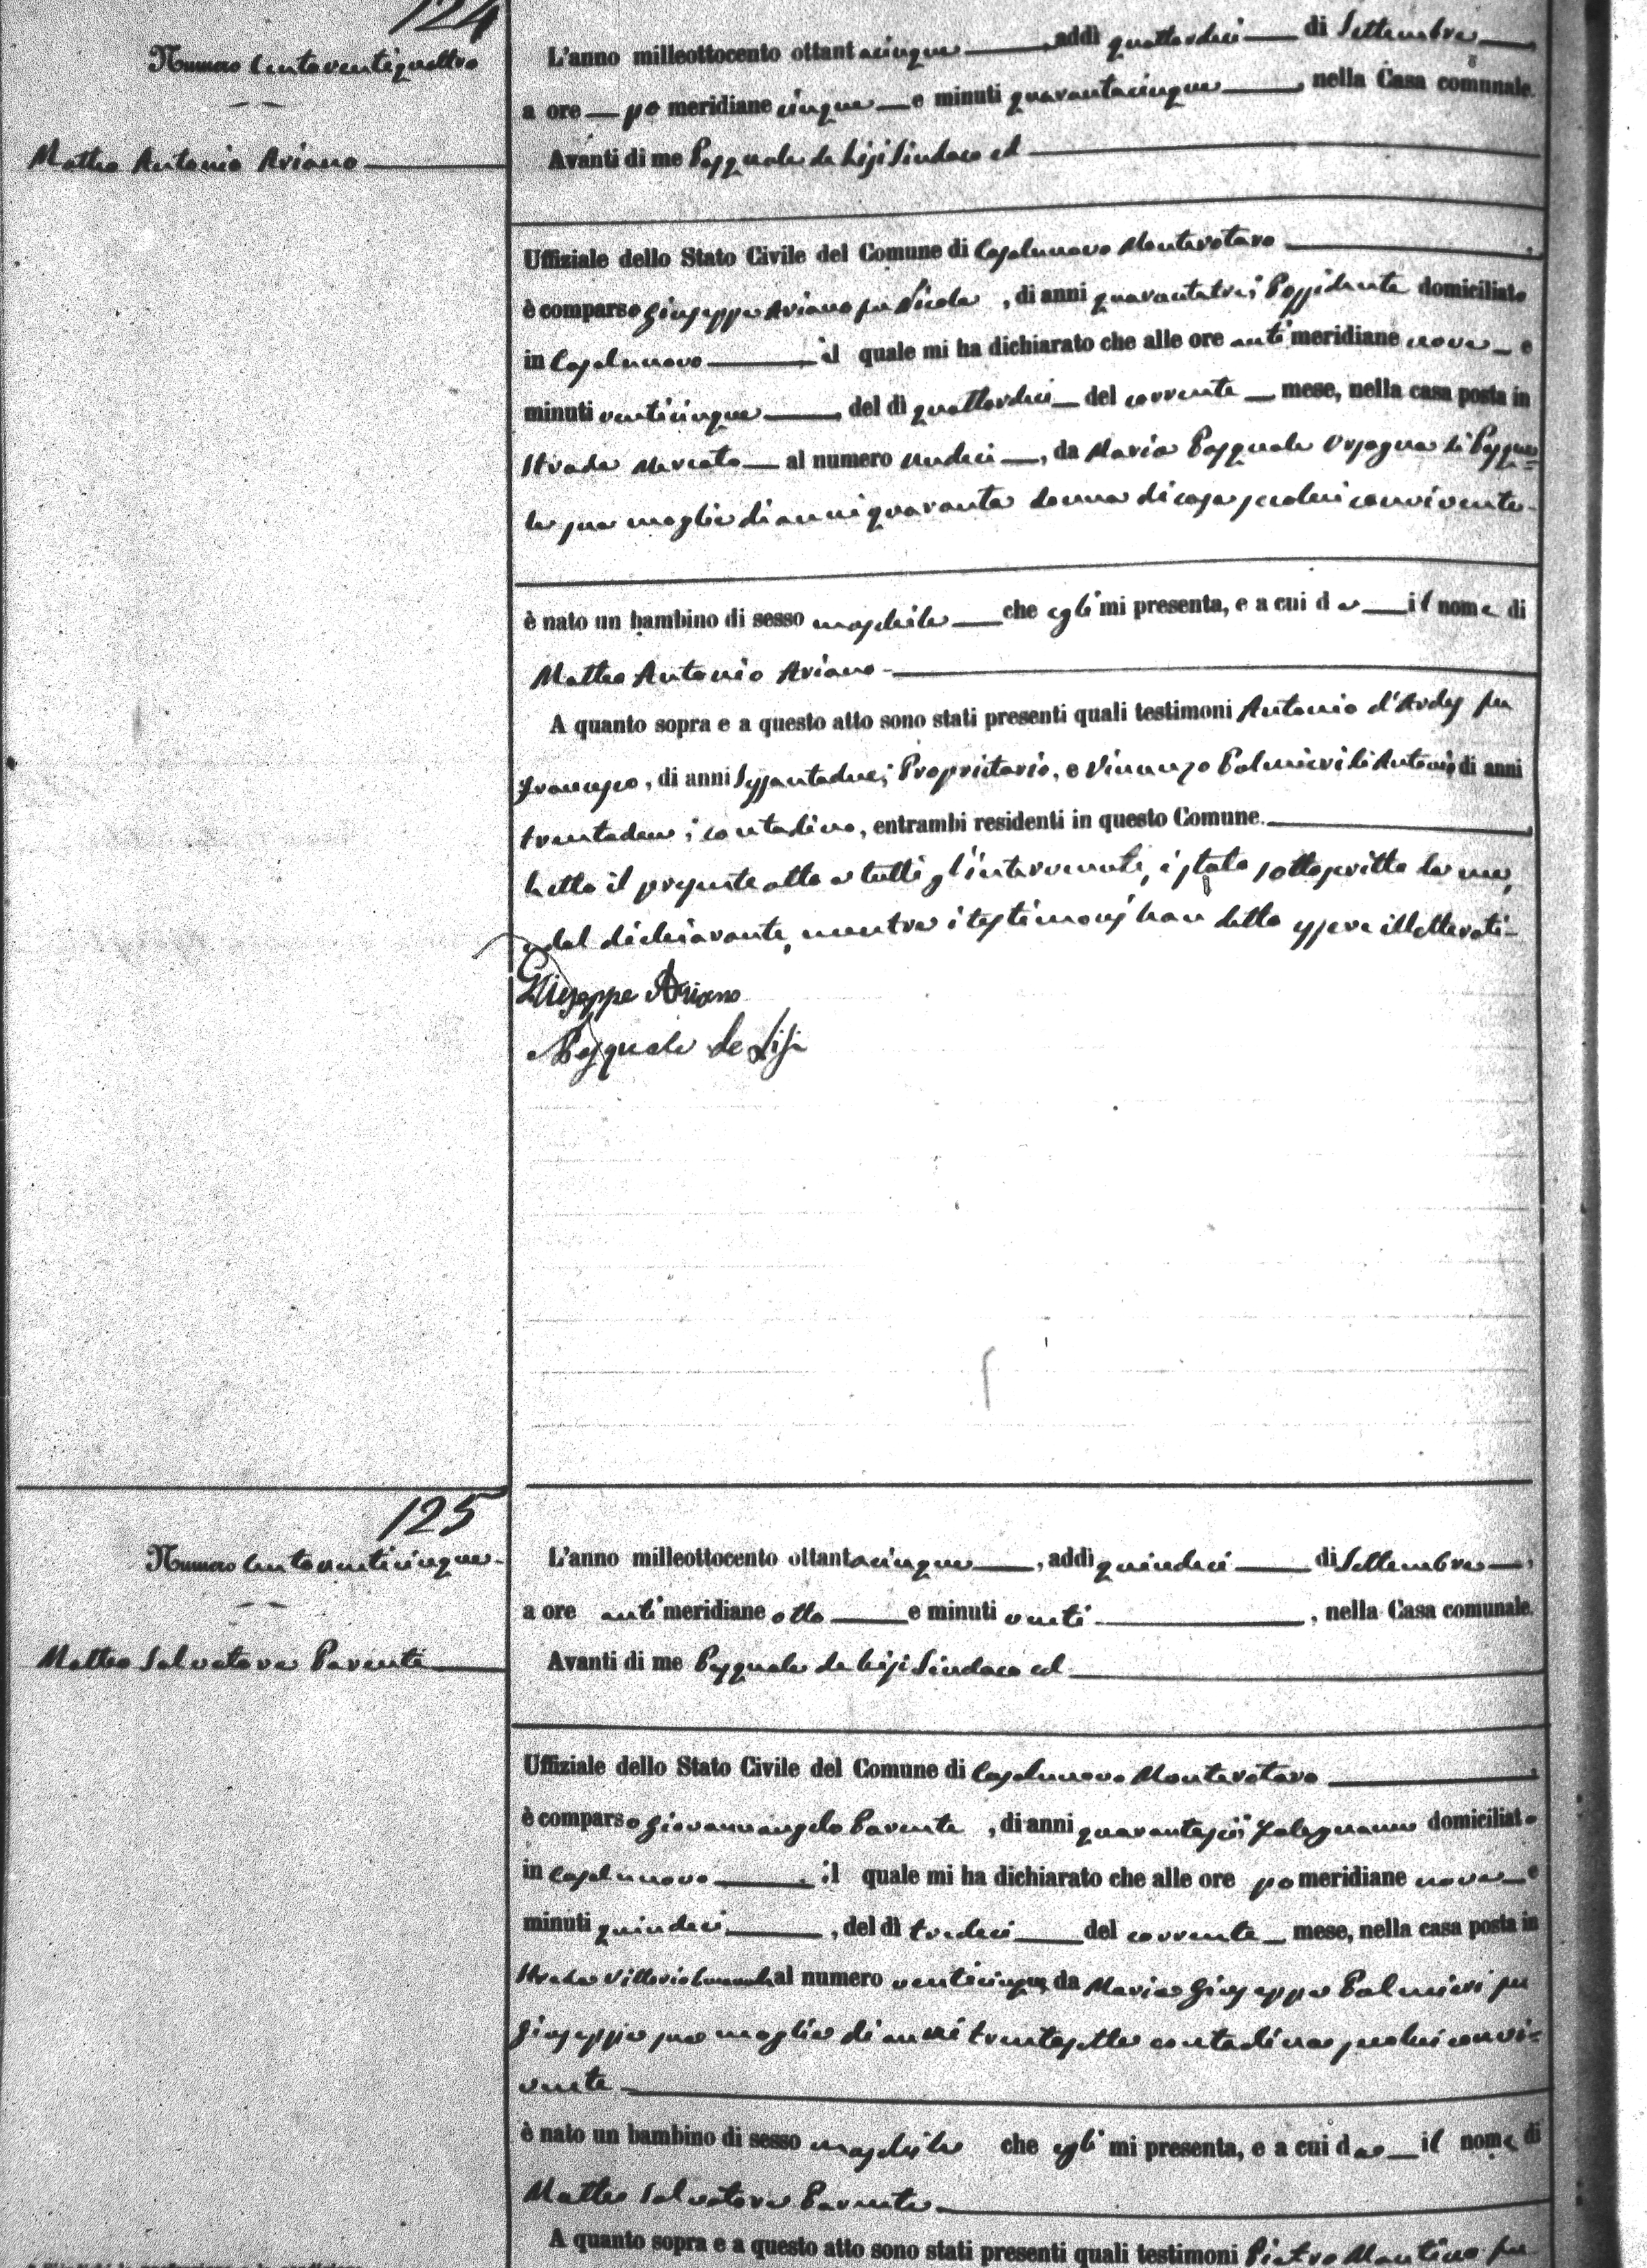 124
Numero centoventiquattro
Matteo Antonio Ariano
L'anno milleottocento ottantacinque, addì quattordici di Settembre,
a ore pomeridiane cinque e minuti quarantacinque, nella Casa comunale.
Avanti di me Pasquale de Lisi Sindaco ed
Uffiziale dello Stato Civile del Comune di Casalnuovo Monterotaro,
è comparso Giuseppe Ariano fu Nicola, di anni quarantatre, Possidente domiciliato
in Casalnuovo il quale mi ha dichiarato che alle ore antimeridiane nove e
minuti venticinque, del dì quattordici del corrente mese, nella casa posta in
Strada Mercato al numero undici, da Maria Pasquale Orsogna di Pasqua=
le sua moglie di anni quaranta donna di casa seco lui convivente
è nato un bambino di sesso maschile che egli mi presenta, e a cui dà il nome di
Matteo Antonio Ariano
A quanto sopra e a questo atto sono stati presenti quali testimoni Antonio d'Ardes fu
Francesco, di anni sessantadue, Proprietario, e Vincenzo Palmieri di Antonio di anni
trentadue, contadino, entrambi residenti in questo Comune.
Letto il presente atto a tutti gl'intervenuti, è stato sottoscritto da me,
e dal dichiarante, mentre i testimonj han detto essere illetterati
Giuseppe Ariano
Pasquale de Lisi
125
Numero centoventicinque
Matteo Salvatore Parente
L'anno milleottocento ottantacinque, addì quindici di Settembre,
a ore antimeridiane otto e minuti venti, nella Casa comunale.
Avanti di me Pasquale de Lisi Sindaco ed
Uffiziale dello Stato Civile del Comune di Casalnuovo Monterotaro,
è comparso Giovannangelo Parente, di anni quarantasei, Falegname domiciliato
in Casalnuovo, il quale mi ha dichiarato che alle ore pomeridiane nove e
minuti quindici, del dì tredici del corrente mese, nella casa posta in
Strada Vittorio Emanuele al numero venticinque, da Maria Giuseppa Palmieri fu
Giuseppe sua moglie di anni trentasette contadina seco lui convi=
vente
è nato un bambino di sesso maschile che egli mi presenta, e a cui dà il nome di
Matteo Salvatore Parente
A quanto sopra e a questo atto sono stati presenti quali testimoni Pietro Mantino fu